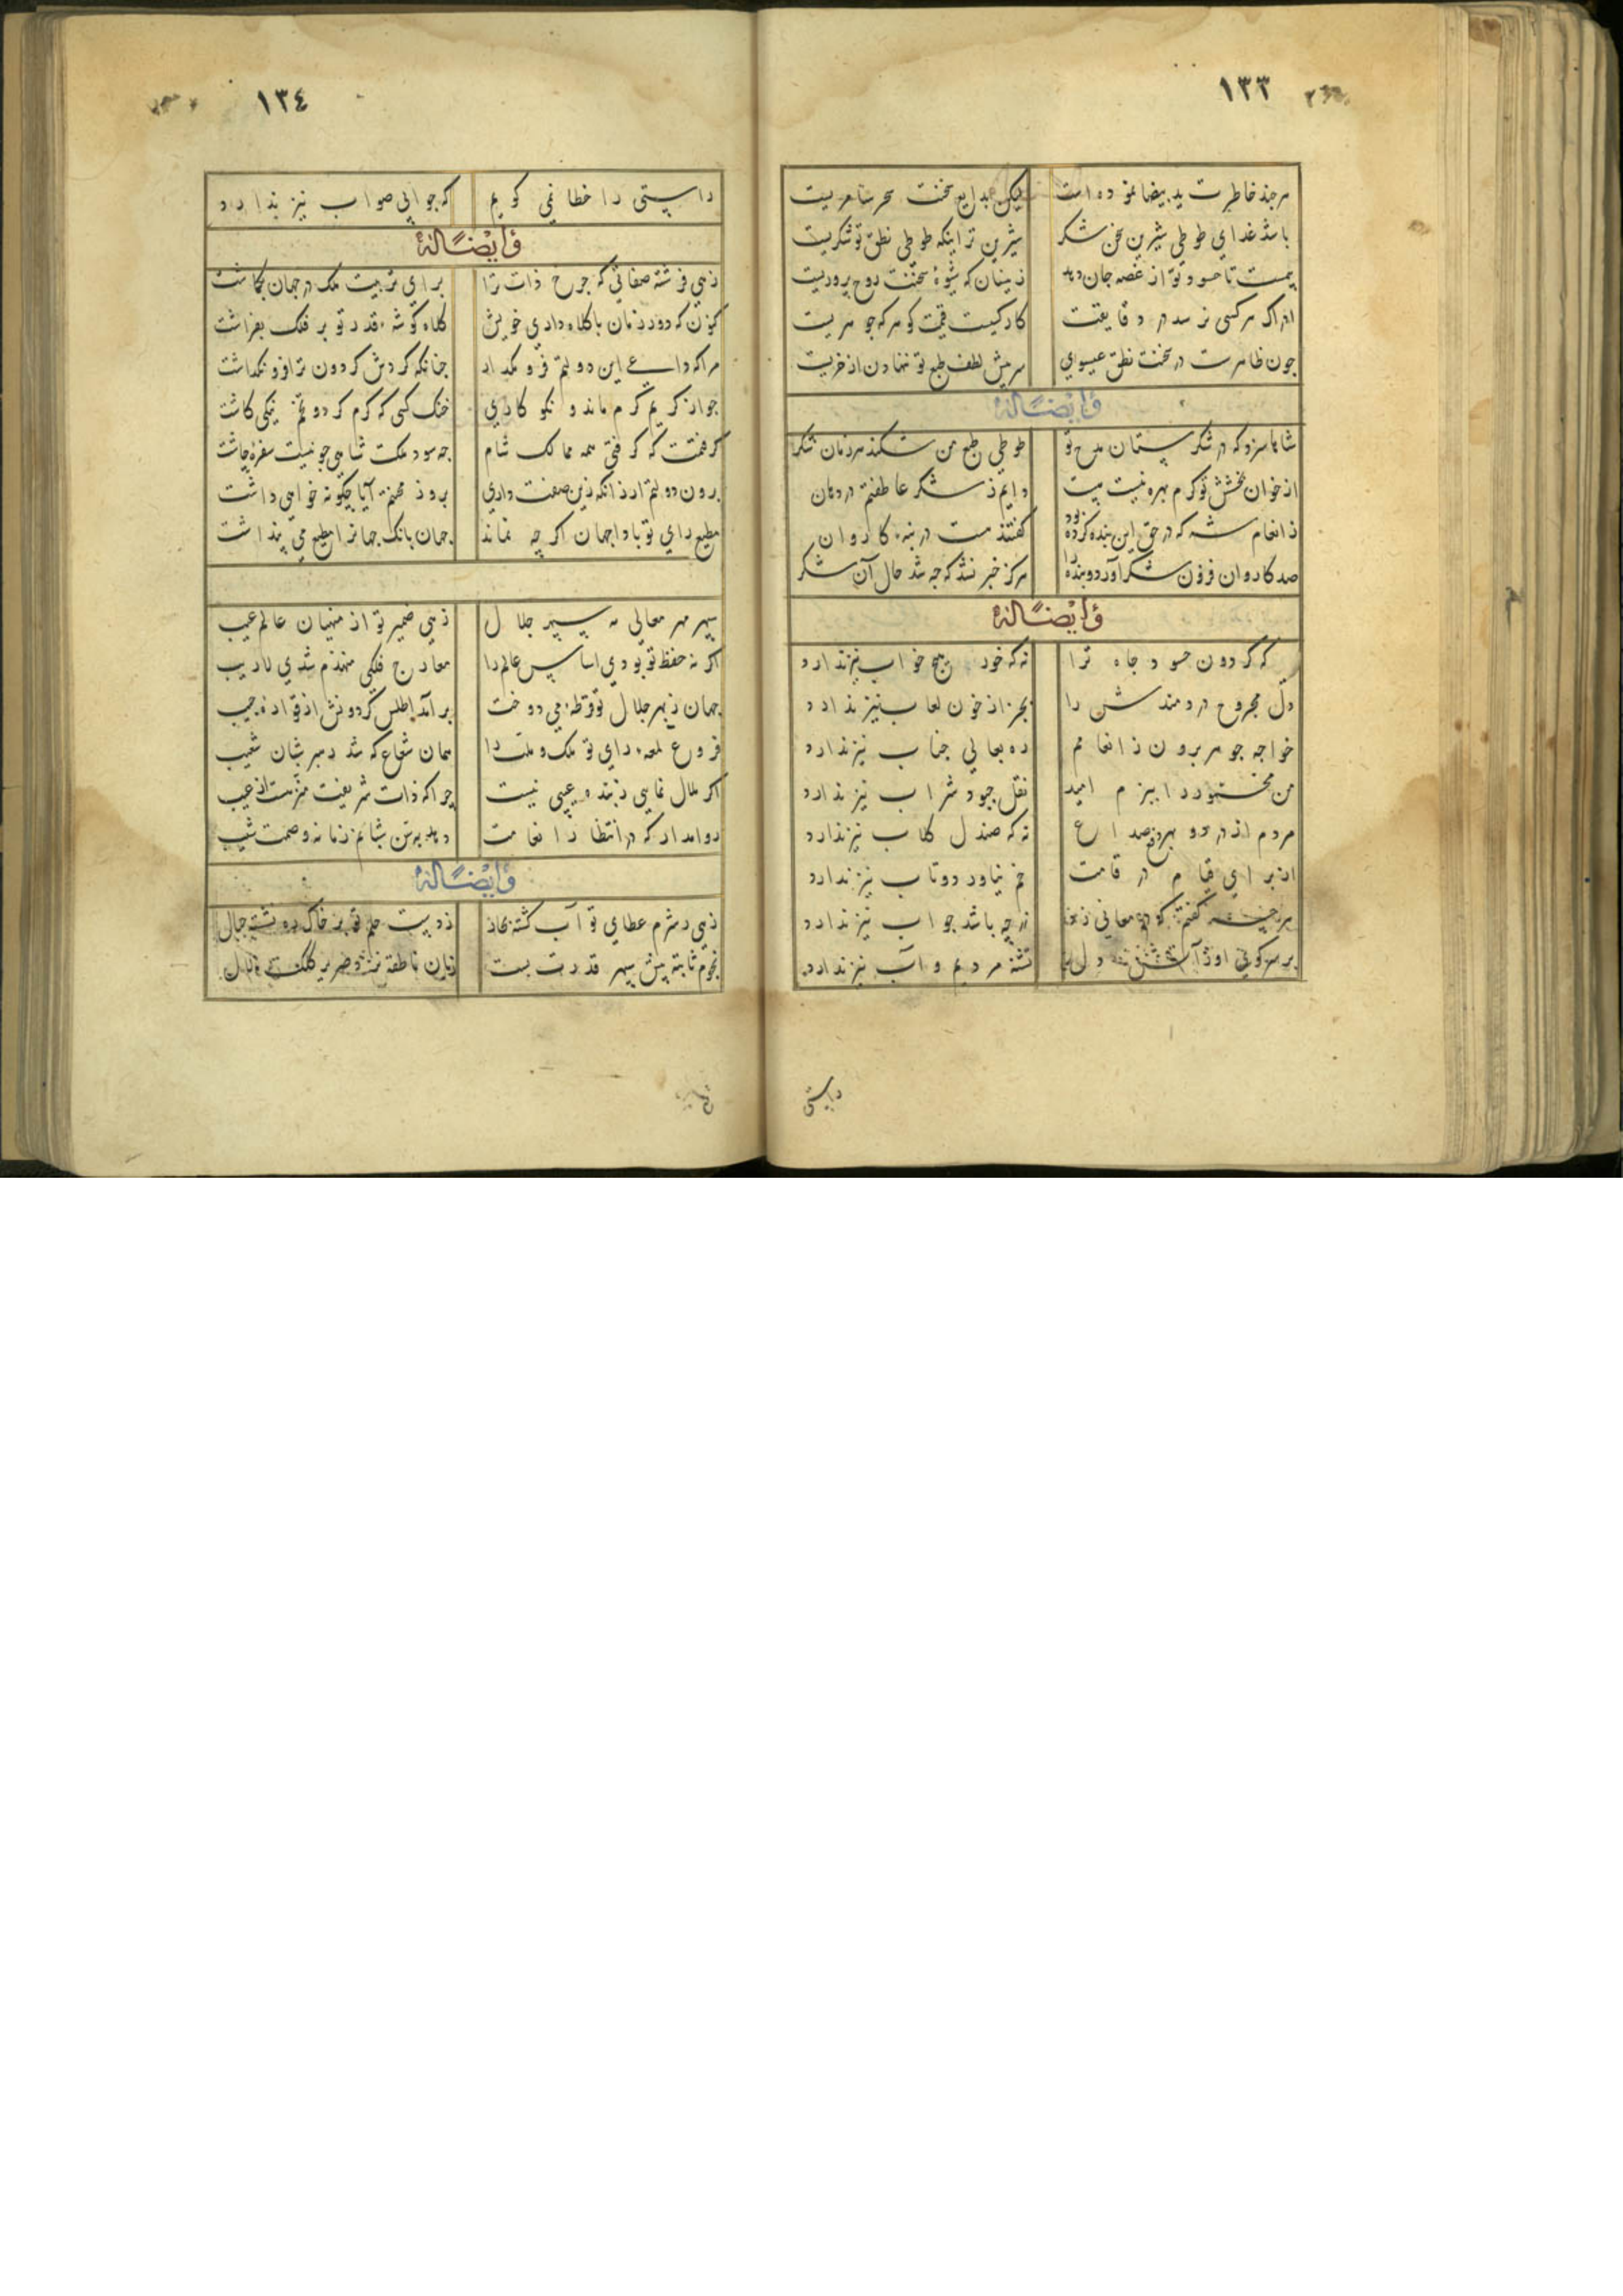 ١٣٣
هرچند خاطرت ید بیضا نموده است لیکن بدایع سخنت سحر سامریست
باشد غذای طوطی شیرین سخن شکر شیرین تر اینکه طوطی نطق تو شکریست
بیمست تا حسود تو از غصه جان دهد زینسان که شیوهٔ سخنت روح پروریست
ادراک هر کسی نرسد در دقایقت کار کیست قیمت گوهر که جوهریست
چون ظاهرست در سخنت نطق عیسوی پیش لطف طبع تو نهادن از خریست
وایضاله
شاها سزد که در شکرستان مدح تو طوطی طبع من شکند هر زمان شکر
از خوان بخشش تو کرم بهره نیست نیست دایم ز شکر عاطفتم در دهان
ز انعام شه که در حق این بنده کرده بود گفتند هست در بنه کاروان
صد کاروان فزون شکر آورد و بنده را هرگز خبر نشد که چه شد حال آن شکر
وایضاله
که گردون حسود جاه ترا نه که خود هیچ خواب نیز ندارد
دل مجروح دردمندش را بجز از خون لعاب نیز ندارد
خواجه جوهر برون ز انعامم ره بعالی جناب نیز ندارد
من بزم امید نقل جود شراب نیز ندارد
مردم از درد و بهر دفع صداع نه که صندل گلاب نیز ندارد
از برای قیام در قامت خم نیاورد و تاب نیز ندارد
گفتم که در معانی نه چه باشد جواب نیز ندارد
بر سر کوی او ز آتش دل تشنه مردیم و آب نیز ندارد
راستی
١٣٤
راستی را خطا نمی گویم که جوابی صواب نیز ندارد
وایضاله
زهی فرشته صفاتی که چرخ ذات ترا برای تربیت ملک در جهان بگماشت
کنون که دور زمان با کلاه داری خویش کلاه گوشه قدر تو بر فلک بفراشت
چنانکه گردش گردون ترا فرو نگذاشت
جوانکریم کرم ماند و نکو کاری خنک کسی که کرم کرد و تخم نیکی کاشت
گرفتمت که گرفتی همه ممالک شام چه سود ملکت شاهی چو نیست سفره چاشت
برون دولتم ار زانکه زین صفت داری بروز محنتم آیا چگونه خواهی داشت
مطیع رای تو بادا جهان اگر چه نماند جهان بانک جهانرا مطیع می پنداشت
سپهر مهر معالی مه سپهر جلال زهی ضمیر تو از منهیان عالم غیب
اگر نه حفظ تو بودی اساس عالم را معارج فلکی منهدم شدی لاریب
جهان ز بهر جلال تو قرطه می دوخت بر آمد اطلس گردونش از قواره جیب
فروغ لمعه رای تو ملک و ملت را همان شعاع که شد رهبر شبان شعیب
اگر ملال نمایی ز بنده عیبی نیست چرا که ذات شریفت منزهست از عیب
روامدار که در انتظار انعامت دمد بر شبانم زمانه وصمت شیب
وایضاله
زهی ز شرم عطای تو آب گشته بحار ز دست حلم تو بر خاک ره نشسته جبال
نجوم ثابته پیش سپهر قدرت پست زبان ناطقه نزد صریر کلکت لال